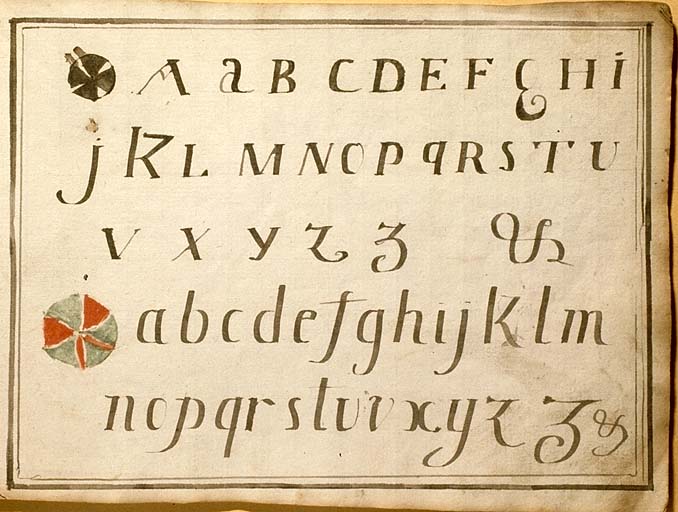 A a B C D E F G H i
j K L M N O P q R S T U
V X Y Z Z &
a b c d e f g h i j k l m
n o p q r s t u v x y z Z &